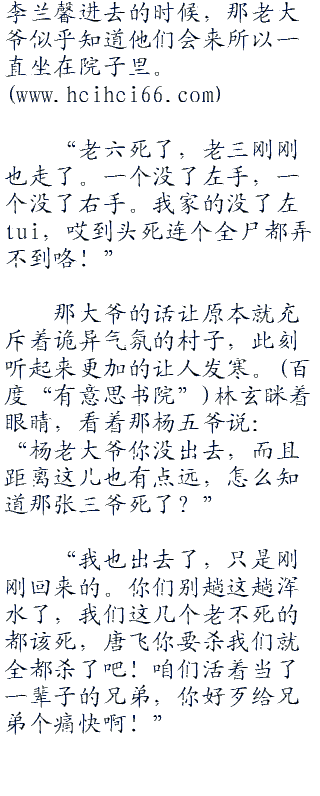 李兰馨进去的时候，那老大
爷似乎知道他们会来所以一
直坐在院子里。
(www.hcihci66.com)
“老六死了，老三刚刚
也走了。一个没了左手，一
个没了右手。我家的没了左
tui，哎到头死连个全尸都弄
不到咯！”
那大爷的话让原本就充
斥着诡异气氛的村子，此刻
听起来更加的让人发寒。(百
度“有意思书院”)林玄眯着
眼睛，看着那杨五爷说：
“杨老大爷你没出去，而且
距离这儿也有点远，怎么知
道那张三爷死了？”
“我也出去了，只是刚
刚回来的。你们别趟这趟浑
水了，我们这几个老不死的
都该死，唐飞你要杀我们就
全都杀了吧！咱们活着当了
一辈子的兄弟，你好歹给兄
弟个痛快啊！”